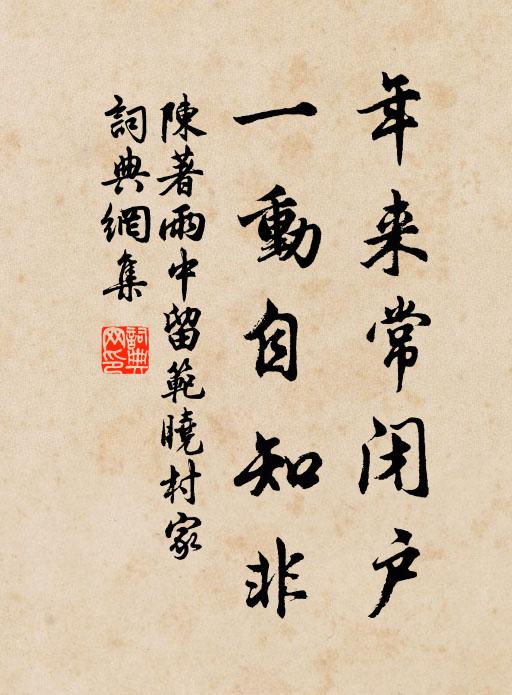 年来常闭户
一動自知非
陳著雨中留範曉村家
詞典網集
詞典网印